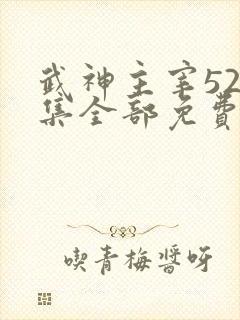 武神主宰52
集全部免费
喫青梅醬呀